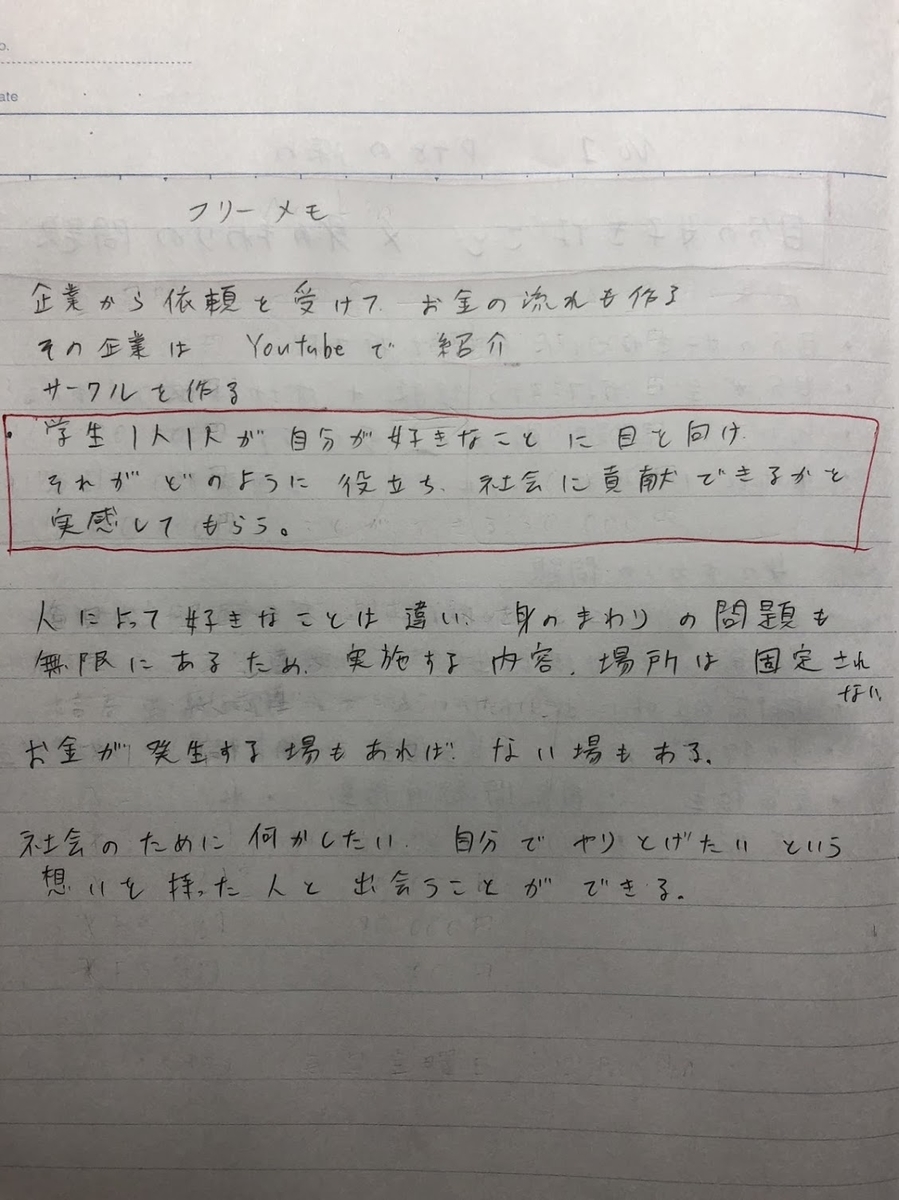 o.
ate
フリーメモ
企業から依頼を受けて、お金の流れも作る
その企業は Youtubeで 紹介
サークルを作る
・学生1人1人が自分が好きなことに目を向け、
それがどのように役立ち、社会に貢献できるかを
実感してもらう。
人によって好きなことは違い、身のまわりの問題も
無限にあるため、実施する内容、場所は固定され
ない
お金が発生する場もあれば、ない場もある。
社会のために何かしたい、自分でやりとげたいという
想いを持った人と出会うことができる。